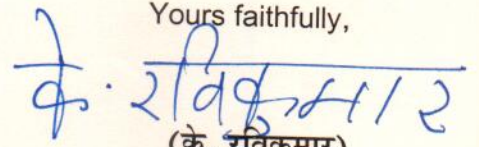 Yours faithfully,
के. रविकुमार
(के. रविकुमार)